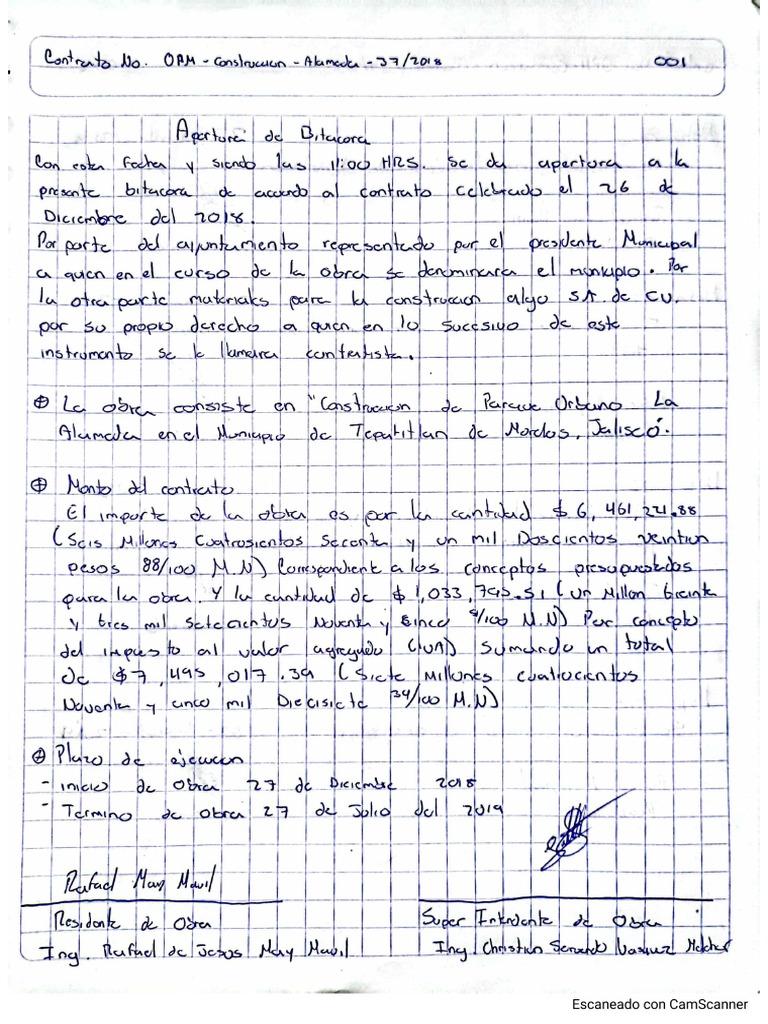 Contrato No. OPM - Construccion - Alameda - 37/2018 001
Apertura de Bitacora
Con esta fecha y siendo las 11:00 HRS. se da apertura a la
presente bitacora de acuerdo al contrato celebrado el 26 de
Diciembre del 2018.
Por parte del ayuntamiento representado por el presidente Municipal
a quien en el curso de la obra se denominara el municipio. Por
la otra parte materiales para la construccion algo SA. de CV.
por su propio derecho a quien en lo sucesivo de este
instrumento se le llamara contratista.
⊕ La obra consiste en "Construccion de Parque Urbano La
Alameda en el Municipio de Tepatitlan de Morelos, Jalisco.
⊕ Monto del contrato
El importe de la obra es por la cantidad $ 6,461,221.88
(Seis Millones Cuatrosientos Secenta y un mil Doscientos veintiun
pesos 88/100 M.N) Correspondiente a los conceptos presupuestados
para la obra. Y la cantidad de $ 1,033,795.51 (un Millon treinta
y tres mil setecientos Noventa y cinco 51/100 M.N) Por concepto
del impuesto al valor agregado (IVA) Sumando un total
de $7,495,017.39 (Siete Millones cuatrocientos
Noventa y cinco mil Diecisiete 39/100 M.N)
⊕ Plazo de ejecucion
- inicio de Obra 27 de Diciembre 2018
- Termino de obra 27 de Julio del 2019
Rafael May Mavil
Residente de Obra Super Intendente de Obra
Ing. Rafael de Jesus May Mavil Ing. Christian Servando Vasquez Melchor
Escaneado con CamScanner